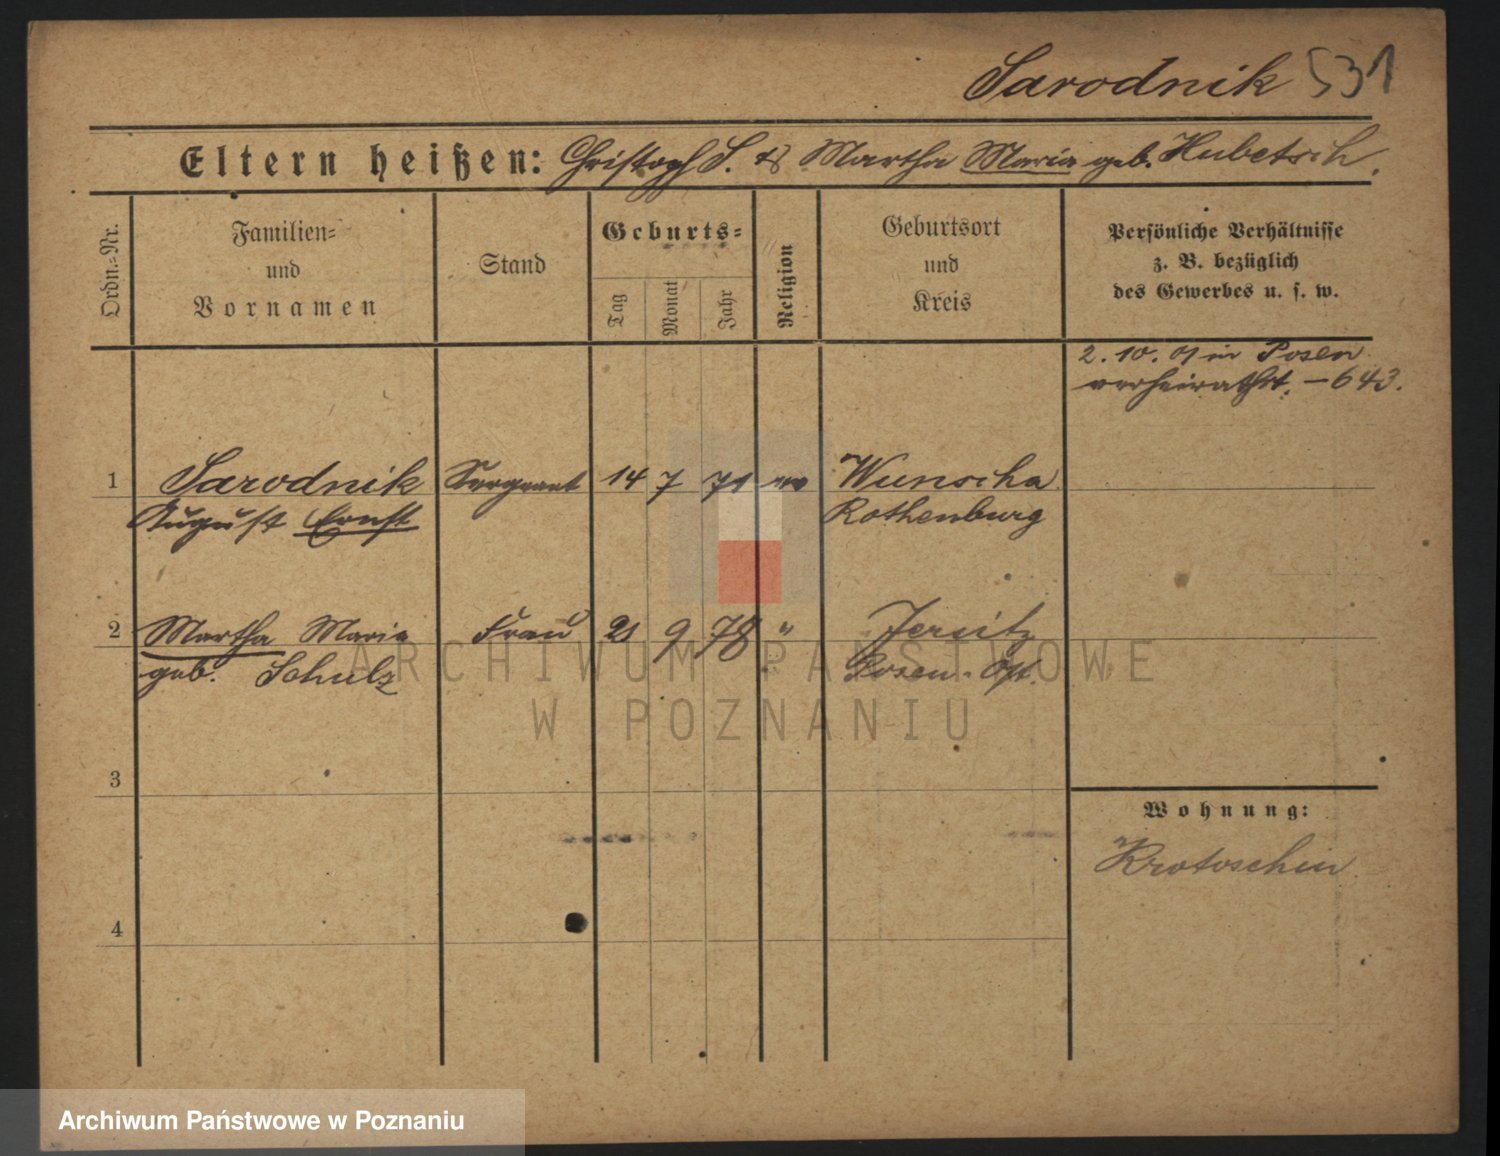 Sarodnik 531
Eltern heißen: Christoph S. & Martha Maria geb. Hubatsch.
Ordn.-Nr.
Familien-
und
Vornamen
Stand
Geburts-
Tag
Monat
Jahr
Religion
Geburtsort
und
Kreis
Persönliche Verhältnisse
z. B. bezüglich
des Gewerbes u. s. w.
2. 10. 01 in Posen
verheirathet. — 643.
1 Sarodnik Sergeant 14 7 71 ev Wunscha
August Ernst Rothenburg
2 Martha Maria Frau 21 9 78 " Jersitz
geb. Schulz Posen Ost.
ARCHIWUM PAŃSTWOWE
W POZNANIU
3
Wohnung:
Krotoschin
4
Archiwum Państwowe w Poznaniu